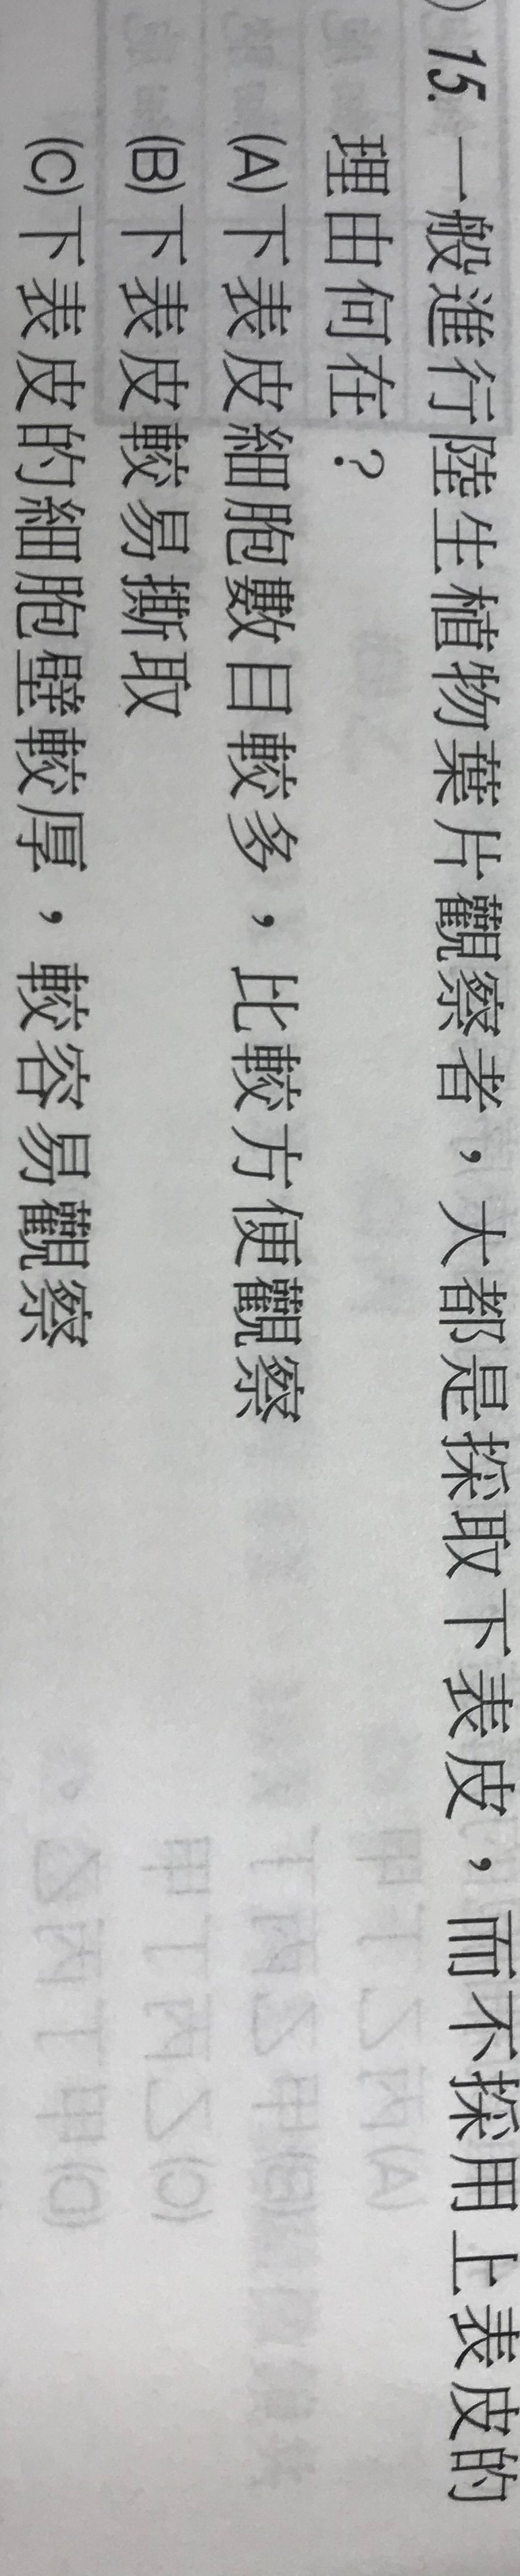 ) 15. 一般進行陸生植物葉片觀察者，大都是採取下表皮，而不採用上表皮的
理由何在？
(A)下表皮細胞數目較多，比較方便觀察
(B)下表皮較易撕取
(C)下表皮的細胞壁較厚，較容易觀察